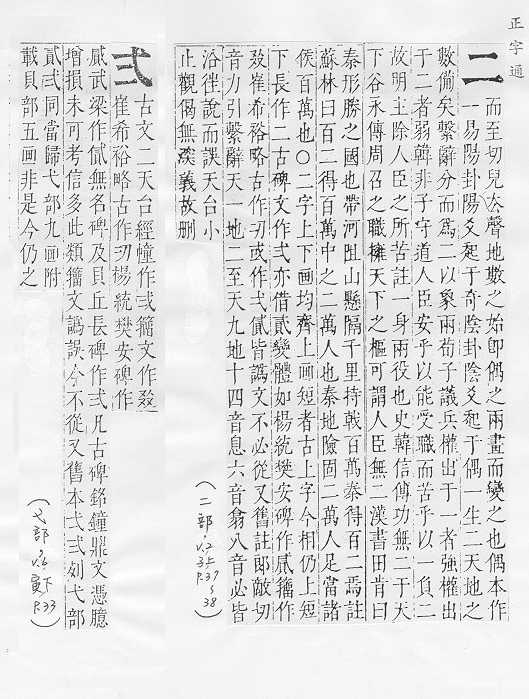 正字通
二
而至切兒去聲地數之始卽偶之兩畫而變之也偶本作
一易陽卦陽爻起于奇陰卦陰爻起于偶一生二天地之
數備矣繫辭分而爲二以象兩荀子議兵權出于一者強權出
于二者弱韓非子守道人臣安乎以能受職而苦乎以一負二
故明主除人臣之所苦註一身兩役也史韓信傳功無二于天
下谷永傳周召之職擁天下之樞可謂人臣無二漢書田肯曰
秦形勝之國也帶河阻山懸隔千里持戟百萬秦得百二焉註
蘇林曰百二得百萬中之二萬人也秦地險固二萬人足當諸
侯百萬也○二字上下画均齊上画短者古上字今相仍上短
下長作二古碑文作弍亦借貳變體如楊統樊安碑作貮籀作
崔希裕略古作刃或作弍貳皆譌文不必從又舊註郎敵切
音力引繫辭天一地二至天九地十四音息六音翕八音必皆
沿徃說而誤天台小
止觀偈無深義故删
(二部,v.2 P.37~38)
弍
古文二天台經幢作弍籀文作
崔希裕略古作刃楊統樊安碑作
貮武梁作貳無名碑及貝丘長碑作弍凡古碑銘鐘鼎文憑臆
增損未可考信多此類籀文譌誤今不從又舊本弌弍列弋部
貳弍同當歸弋部九画附
載貝部五画非是今仍之
(弋部, P.33)